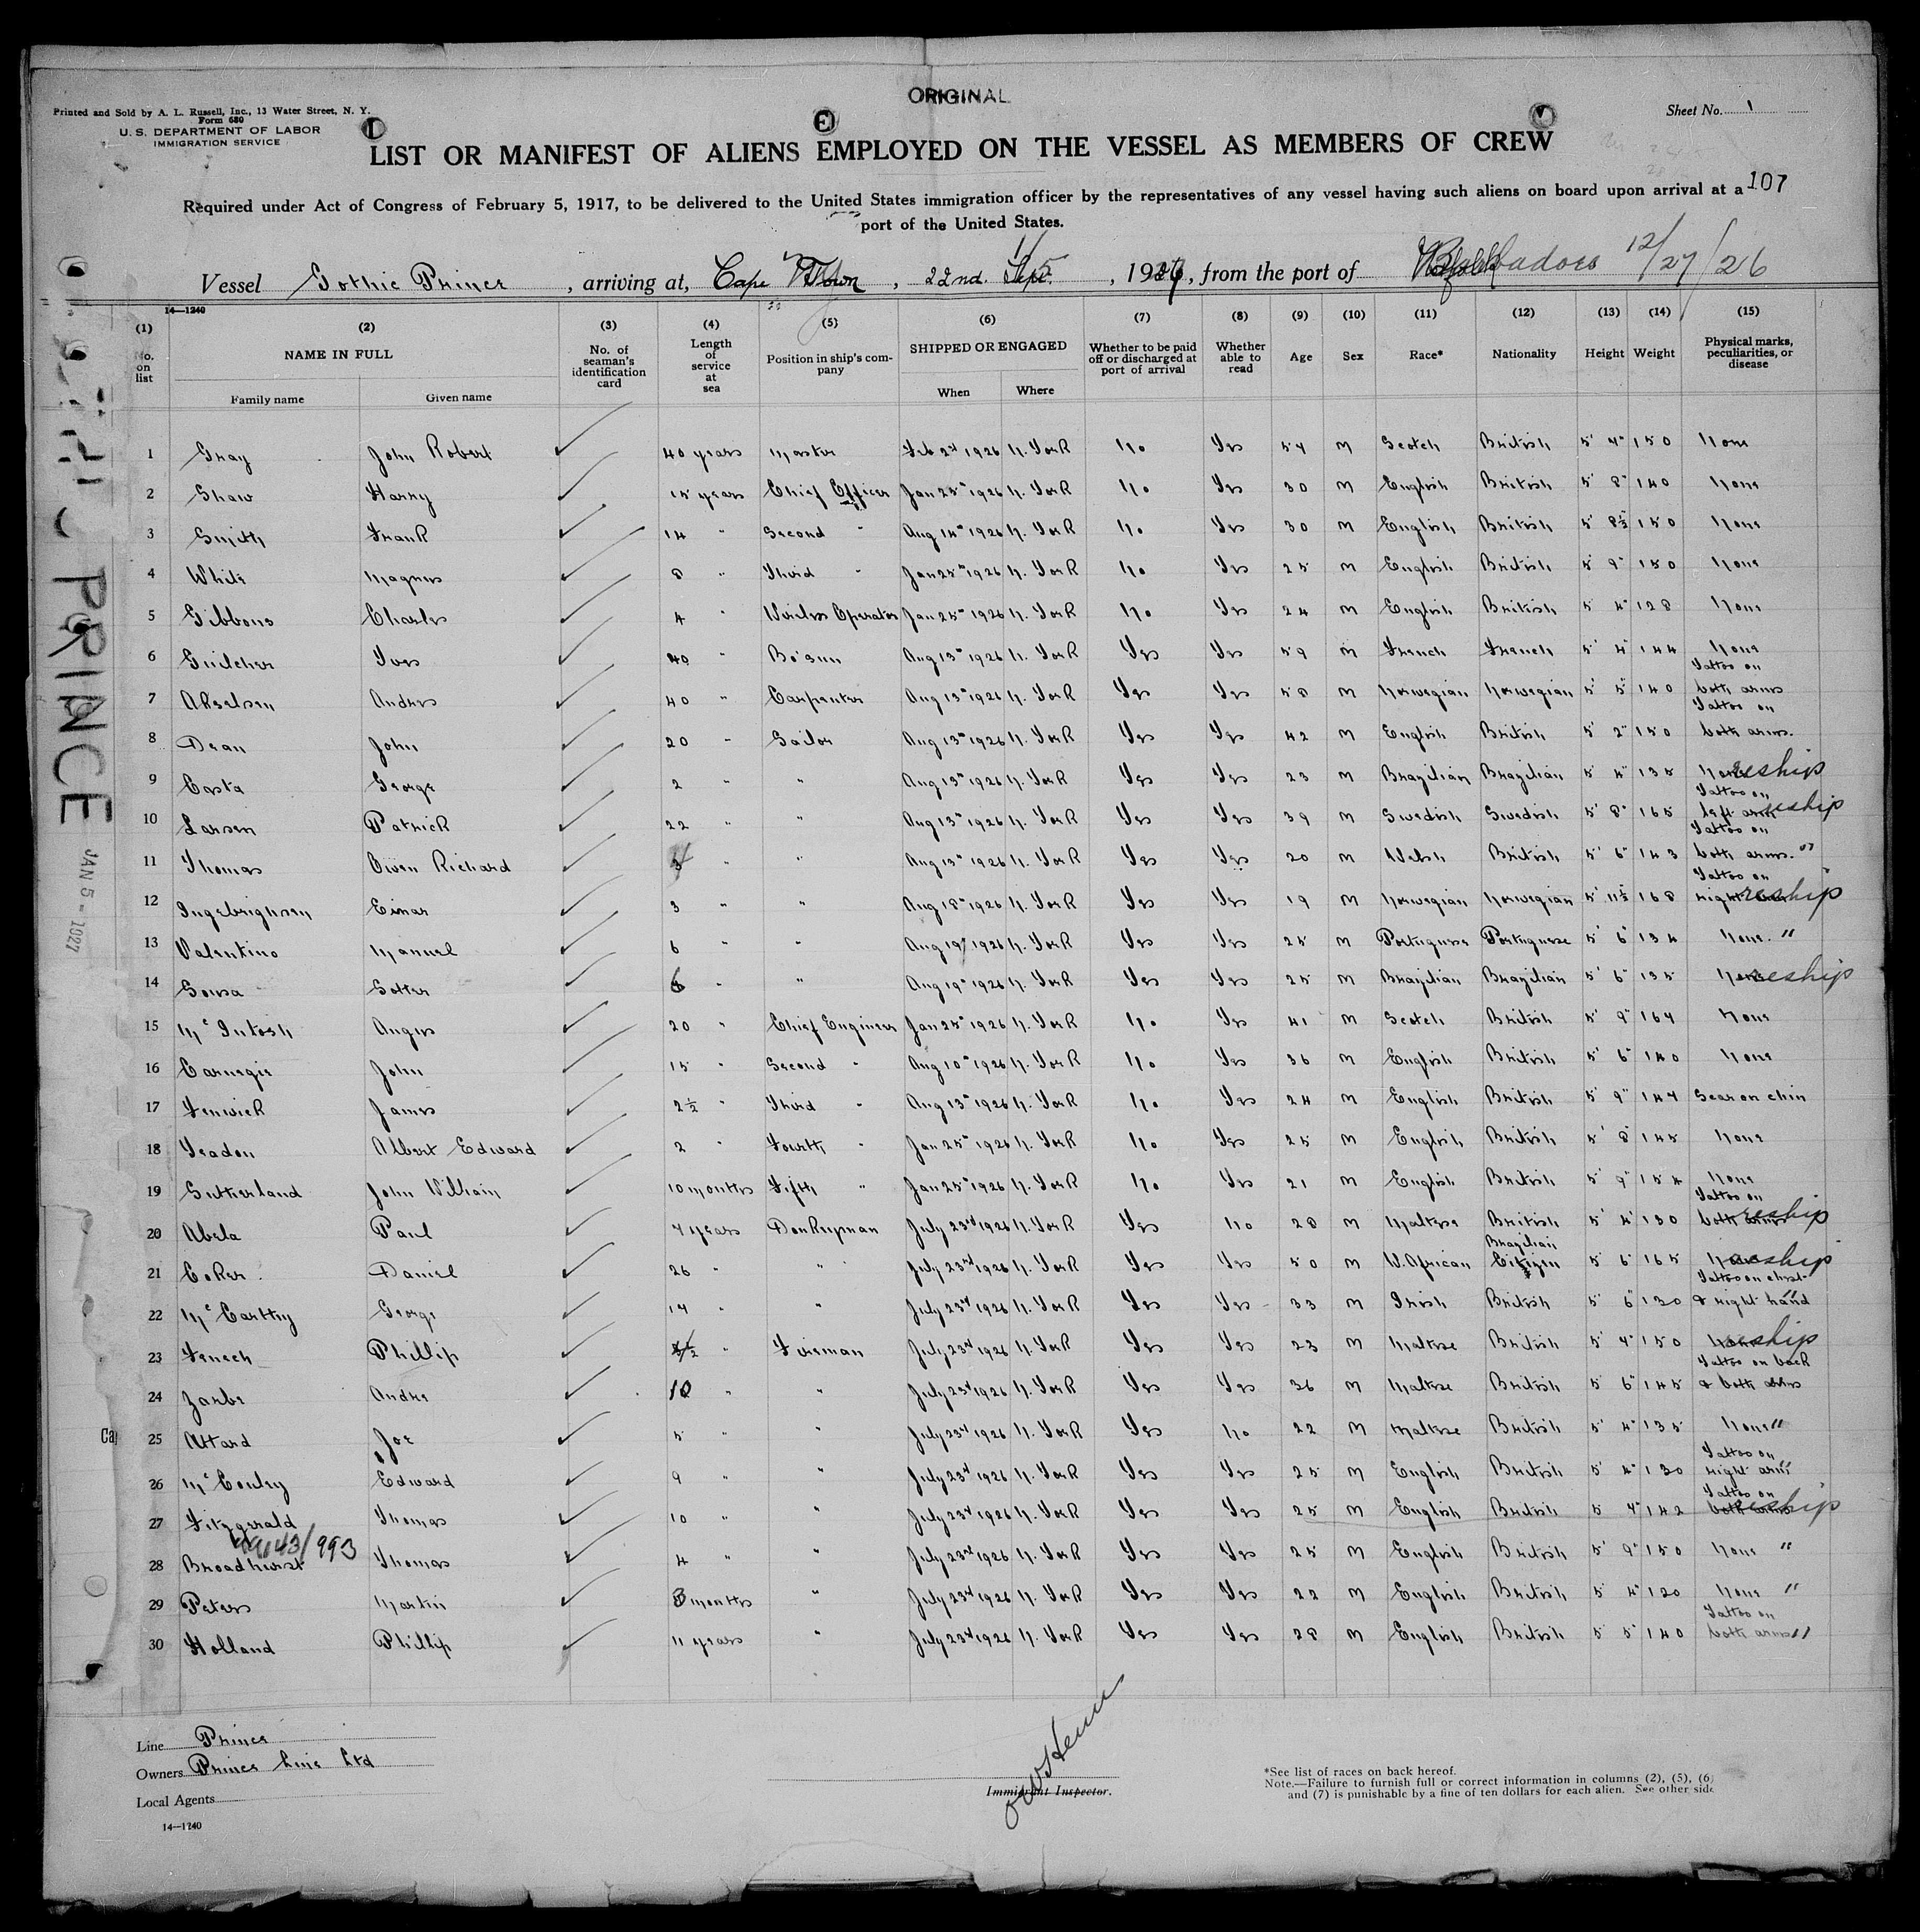 ORIGINAL
Printed and Sold by A. L. Russell, Inc., 13 Water Street, N. Y.
Form 680
U. S. DEPARTMENT OF LABOR
IMMIGRATION SERVICE
Sheet No. 1
LIST OR MANIFEST OF ALIENS EMPLOYED ON THE VESSEL AS MEMBERS OF CREW
107
Required under Act of Congress of February 5, 1917, to be delivered to the United States immigration officer by the representatives of any vessel having such aliens on board upon arrival at a
port of the United States.
Vessel Gothic Prince, arriving at, Cape Town, 22nd. Sept., 1926, from the port of Barbadoes 12/27/26
14—1240
(1) (2) (3) (4) (5) (6) (7) (8) (9) (10) (11) (12) (13) (14) (15)
No. on list NAME IN FULL No. of seaman's identification card Length of service at sea Position in ship's company SHIPPED OR ENGAGED Whether to be paid off or discharged at port of arrival Whether able to read Age Sex Race* Nationality Height Weight Physical marks, peculiarities, or disease
Family name Given name When Where
1 Gray John Robert 40 years Master Feb 2nd 1926 N. York No Yes 54 M Scotch British 5' 4" 150 None
2 Shaw Harry 15 years Chief Officer Jan 25th 1926 N. York No Yes 30 M English British 5' 8" 140 None
3 Smith Frank 14 " Second " Aug 14th 1926 N. York No Yes 30 M English British 5' 8½ 150 None
4 White Magnus 8 " Third " Jan 25th 1926 N. York No Yes 25 M English British 5' 9" 150 None
5 Gibbons Charles 4 " Wireless Operator Jan 25th 1926 N. York No Yes 24 M English British 5' 4" 128 None
6 Guilcher Yves 40 " Bo'sun Aug 13th 1926 N. York Yes Yes 59 M French French 5' 4" 144 None
7 Akselsen Anders 40 " Carpenter Aug 13th 1926 N. York Yes Yes 58 M Norwegian Norwegian 5' 5" 140 Tattoo on both arms
8 Dean John 20 " Sailor Aug 13th 1926 N. York Yes Yes 42 M English British 5' 2" 150 Tattoo on both arms.
9 Costa George 2 " " Aug 13th 1926 N. York Yes Yes 23 M Brazilian Brazilian 5' 4" 135 None reship
10 Larsen Patrick 22 " " Aug 13th 1926 N. York Yes Yes 39 M Swedish Swedish 5' 8" 165 Tattoo on left arm reship
11 Thomas Owen Richard 3 " " Aug 13th 1926 N. York Yes Yes 20 M Welsh British 5' 6" 143 Tattoo on both arms. "
12 Ingebrigtsen Einar 3 " " Aug 18th 1926 N. York Yes Yes 19 M Norwegian Norwegian 5' 11½ 168 Tattoo on right reship
13 Valentino Manuel 6 " " Aug 19th 1926 N. York Yes Yes 25 M Portuguese Portuguese 5' 6" 134 None. "
14 Sousa Solter 6 " " Aug 19th 1926 N. York Yes Yes 25 M Brazilian Brazilian 5' 6" 135 None reship
15 McIntosh Angus 20 " Chief Engineer Jan 25th 1926 N. York No Yes 41 M Scotch British 5' 9" 164 None
16 Carnegie John 15 " Second " Aug 10th 1926 N. York No Yes 36 M English British 5' 6" 140 None
17 Fenwick James 2½ " Third " Aug 13th 1926 N. York No Yes 24 M English British 5' 9" 147 Scar on chin
18 Yeadon Albert Edward 2 " Fourth " Jan 25th 1926 N. York No Yes 25 M English British 5' 8" 145 None
19 Sutherland John William 10 months Fifth " Jan 25th 1926 N. York No Yes 21 M English British 5' 9" 154 None
20 Abela Paul 7 years Donkeyman July 23rd 1926 N. York Yes No 28 M Maltese British 5' 4" 130 Tattoo on both arms reship
21 Coker Daniel 26 " " July 23rd 1926 N. York Yes Yes 50 M W. African Brazilian Citizen 5' 6" 165 None reship
22 McCarthy George 14 " " July 23rd 1926 N. York Yes Yes 33 M Irish British 5' 6" 130 Tattoo on chest & right hand "
23 Fenech Phillip ½ " Fireman July 23rd 1926 N. York Yes Yes 23 M Maltese British 5' 4" 150 None reship
24 Zarbe Andre 10 " " July 23rd 1926 N. York Yes Yes 36 M Maltese British 5' 6" 145 Tattoo on back & both arms
25 Attard Joe 5 " " July 23rd 1926 N. York Yes No 22 M Maltese British 5' 4" 135 None "
26 McConley Edward 9 " " July 23rd 1926 N. York Yes Yes 25 M English British 5' 4" 130 Tattoo on right arm "
27 Fitzgerald Thomas 10 " " July 23rd 1926 N. York Yes Yes 25 M English British 5' 4" 142 Tattoo on both arms reship
/993
28 Broadhurst Thomas 4 " " July 23rd 1926 N. York Yes Yes 25 M English British 5' 9" 150 None "
29 Peters Martin 3 months " July 23rd 1926 N. York Yes Yes 22 M English British 5' 4" 120 None "
30 Holland Phillip 11 years " July 23rd 1926 N. York Yes Yes 28 M English British 5' 5" 140 Tattoo on both arms "
PRINCE
JAN 5 - 1927
Line Prince
Owners Prince Line Ltd
Local Agents
14—1240
Immigrant Inspector.
*See list of races on back hereof.
Note.—Failure to furnish full or correct information in columns (2), (5), (6)
and (7) is punishable by a fine of ten dollars for each alien. See other side